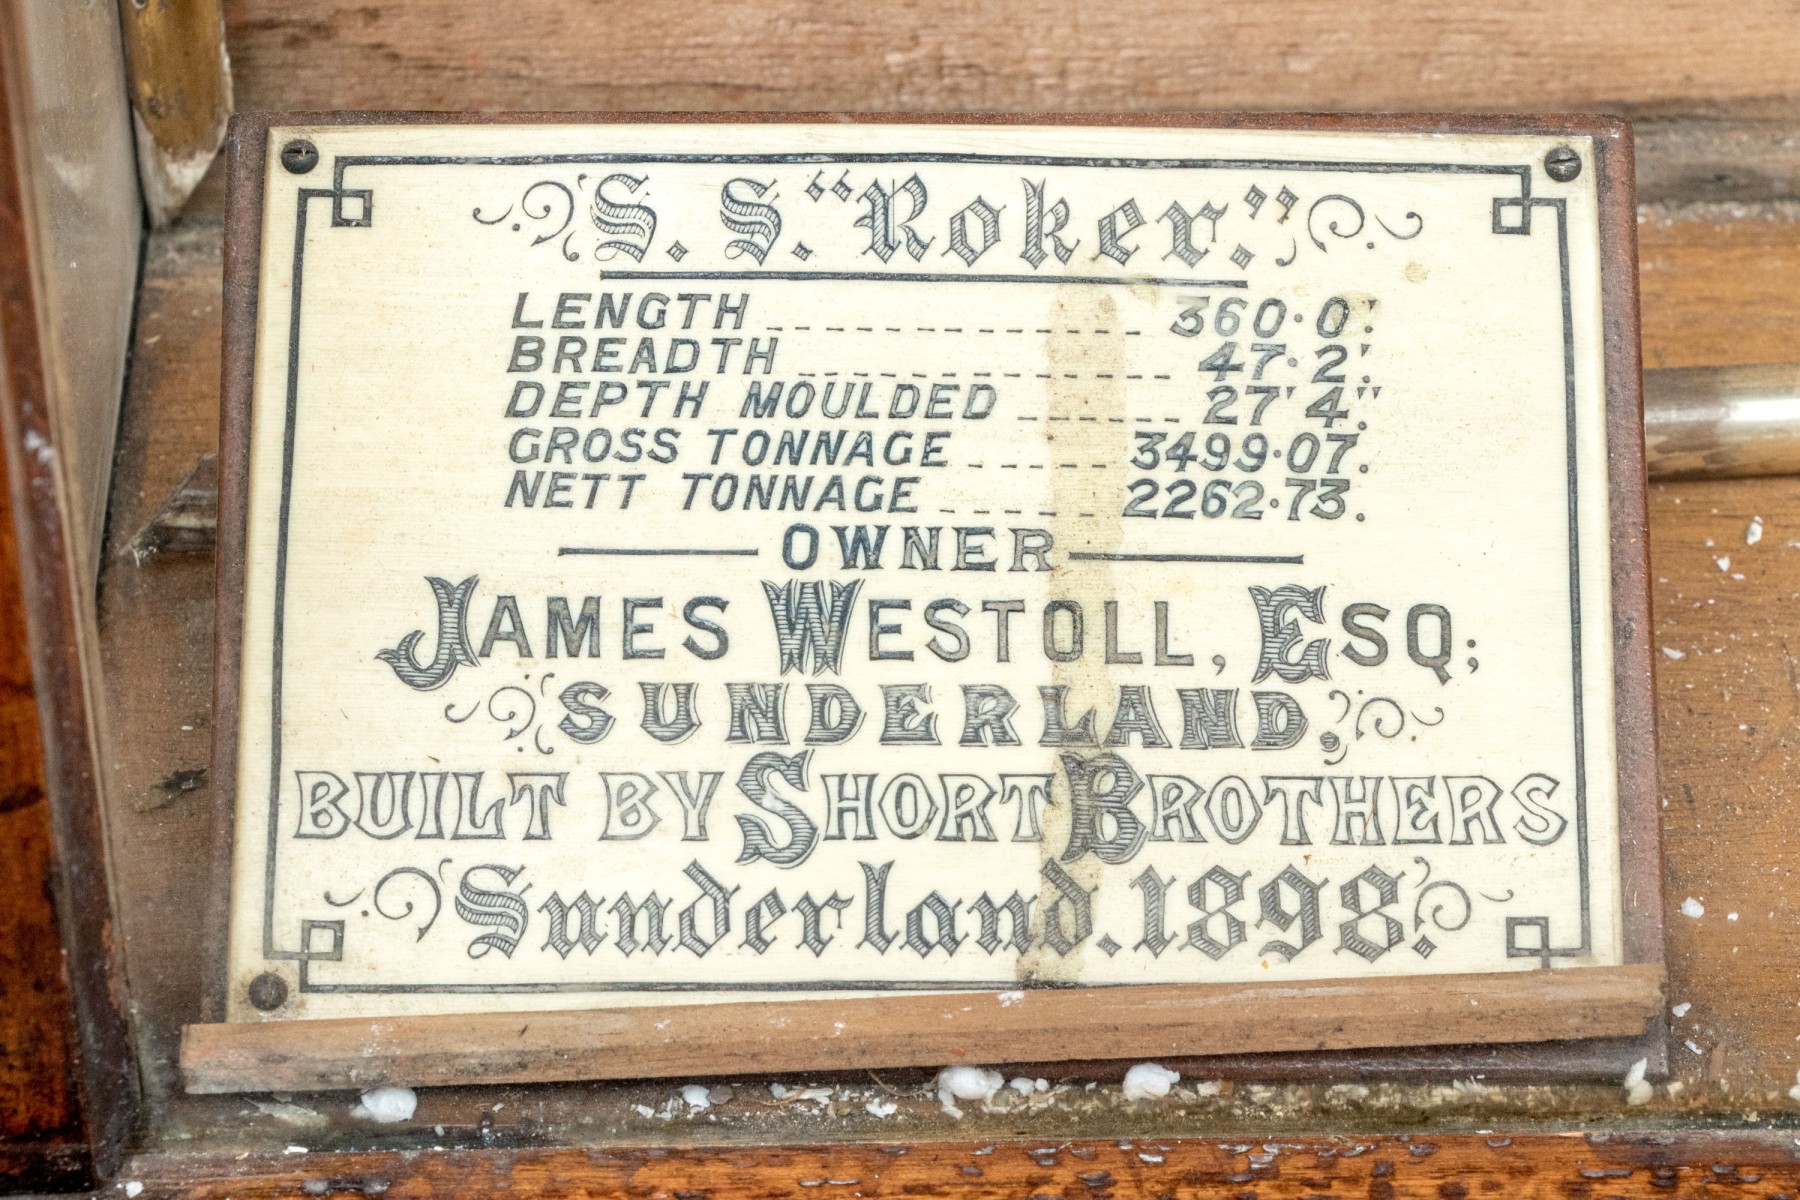 S. S. "Roker."
LENGTH 360·0'.
BREADTH 47·2'.
DEPTH MOULDED 27' 4".
GROSS TONNAGE 3499·07.
NETT TONNAGE 2262·73.
OWNER
JAMES WESTOLL, ESQ;
SUNDERLAND,
BUILT BY SHORT BROTHERS
Sunderland. 1898.